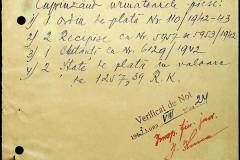 Cuprinzând următoarele piese:
1/ 1 Ordin de plată No 110/942-43
2/ 2 Recipise cu Nr. 5947 și 5953/942
3/ 1 Chitanță cu Nr 6129/1942
4/ 2 State de plată în valoare
de 1257,39 R.K.
Verificat de Noi
194 VII 24
Insp. fin. jud.